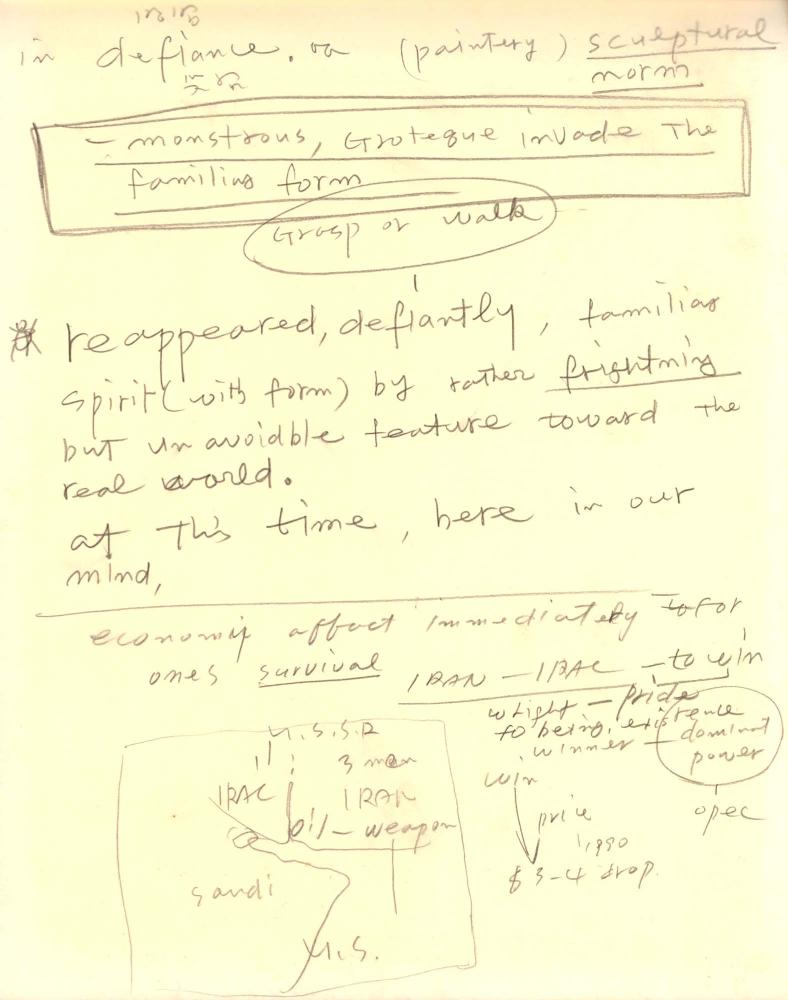 in defiance. on (paintery) sculptural
norm
- monstrous, Groteque invade The
familiar form
Grasp or walk
reappeared, defiantly, familiar
spirit (with form) by rather frightning
but unavoidble feature toward the
real world.
at This time, here in our
mind,
economy affect immediately to for
ones survival
IRAN - IRAC - to win
- pride
to being, existence
winner - dominat
power
win
opec
price
1990
$ 3-4 drop.
U.S.S.R
3 men
IRAC IRAN
oil - weapon
saudi
U.S.